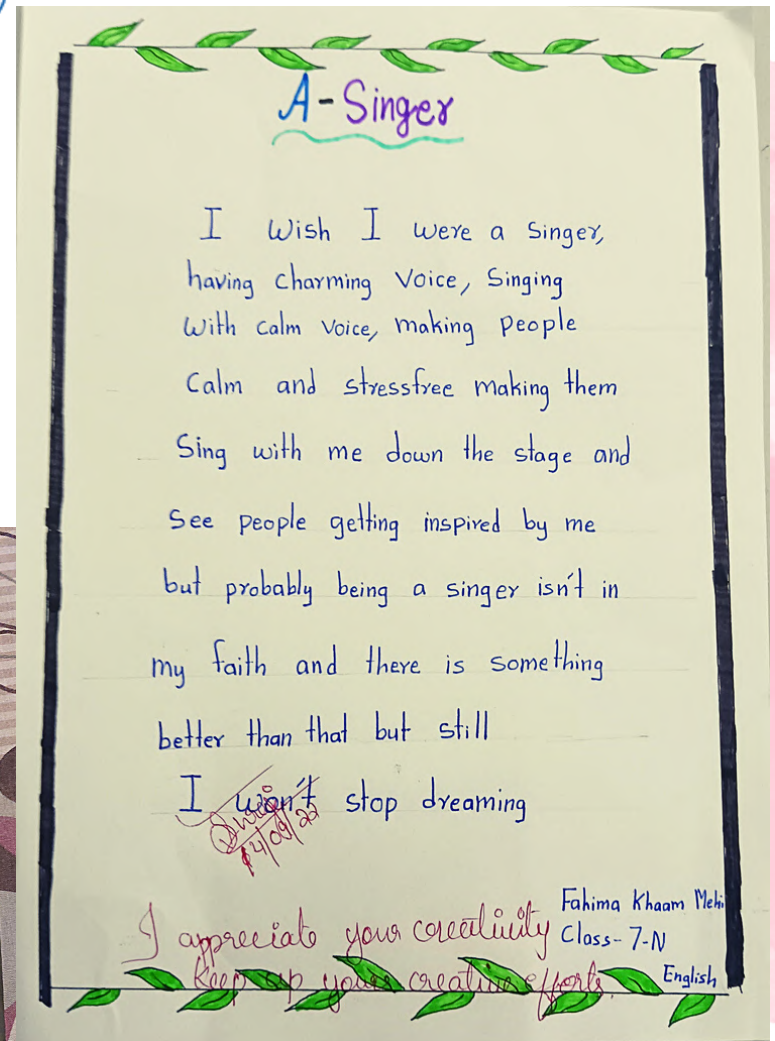 A-Singer
I wish I were a singer,
having charming voice, Singing
with calm voice, making people
Calm and stressfree making them
Sing with me down the stage and
See people getting inspired by me
but probably being a singer isn't in
my faith and there is something
better than that but still
I won't stop dreaming
14/09/22
Fahima Khaam Mehi
I appreciate your creativity
Class- 7-N
Keep up your creative efforts
English